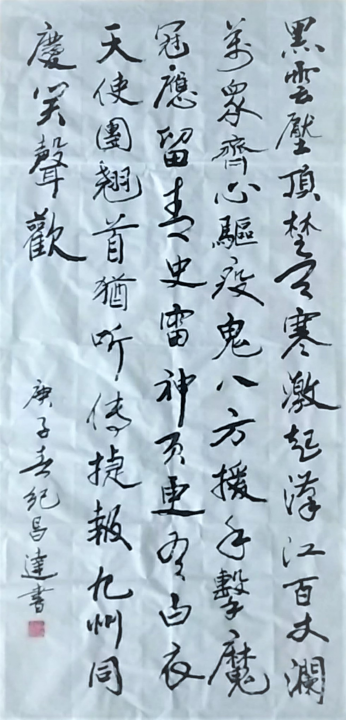 黑雲壓頂楚天寒激起漢江百丈瀾
萬衆齊心驅疫鬼八方援手擊魔
冠應留青史雷神頁更有白衣
天使團翹首猶听傳捷報九州同
慶笑聲歡
庚子春紀昌達書